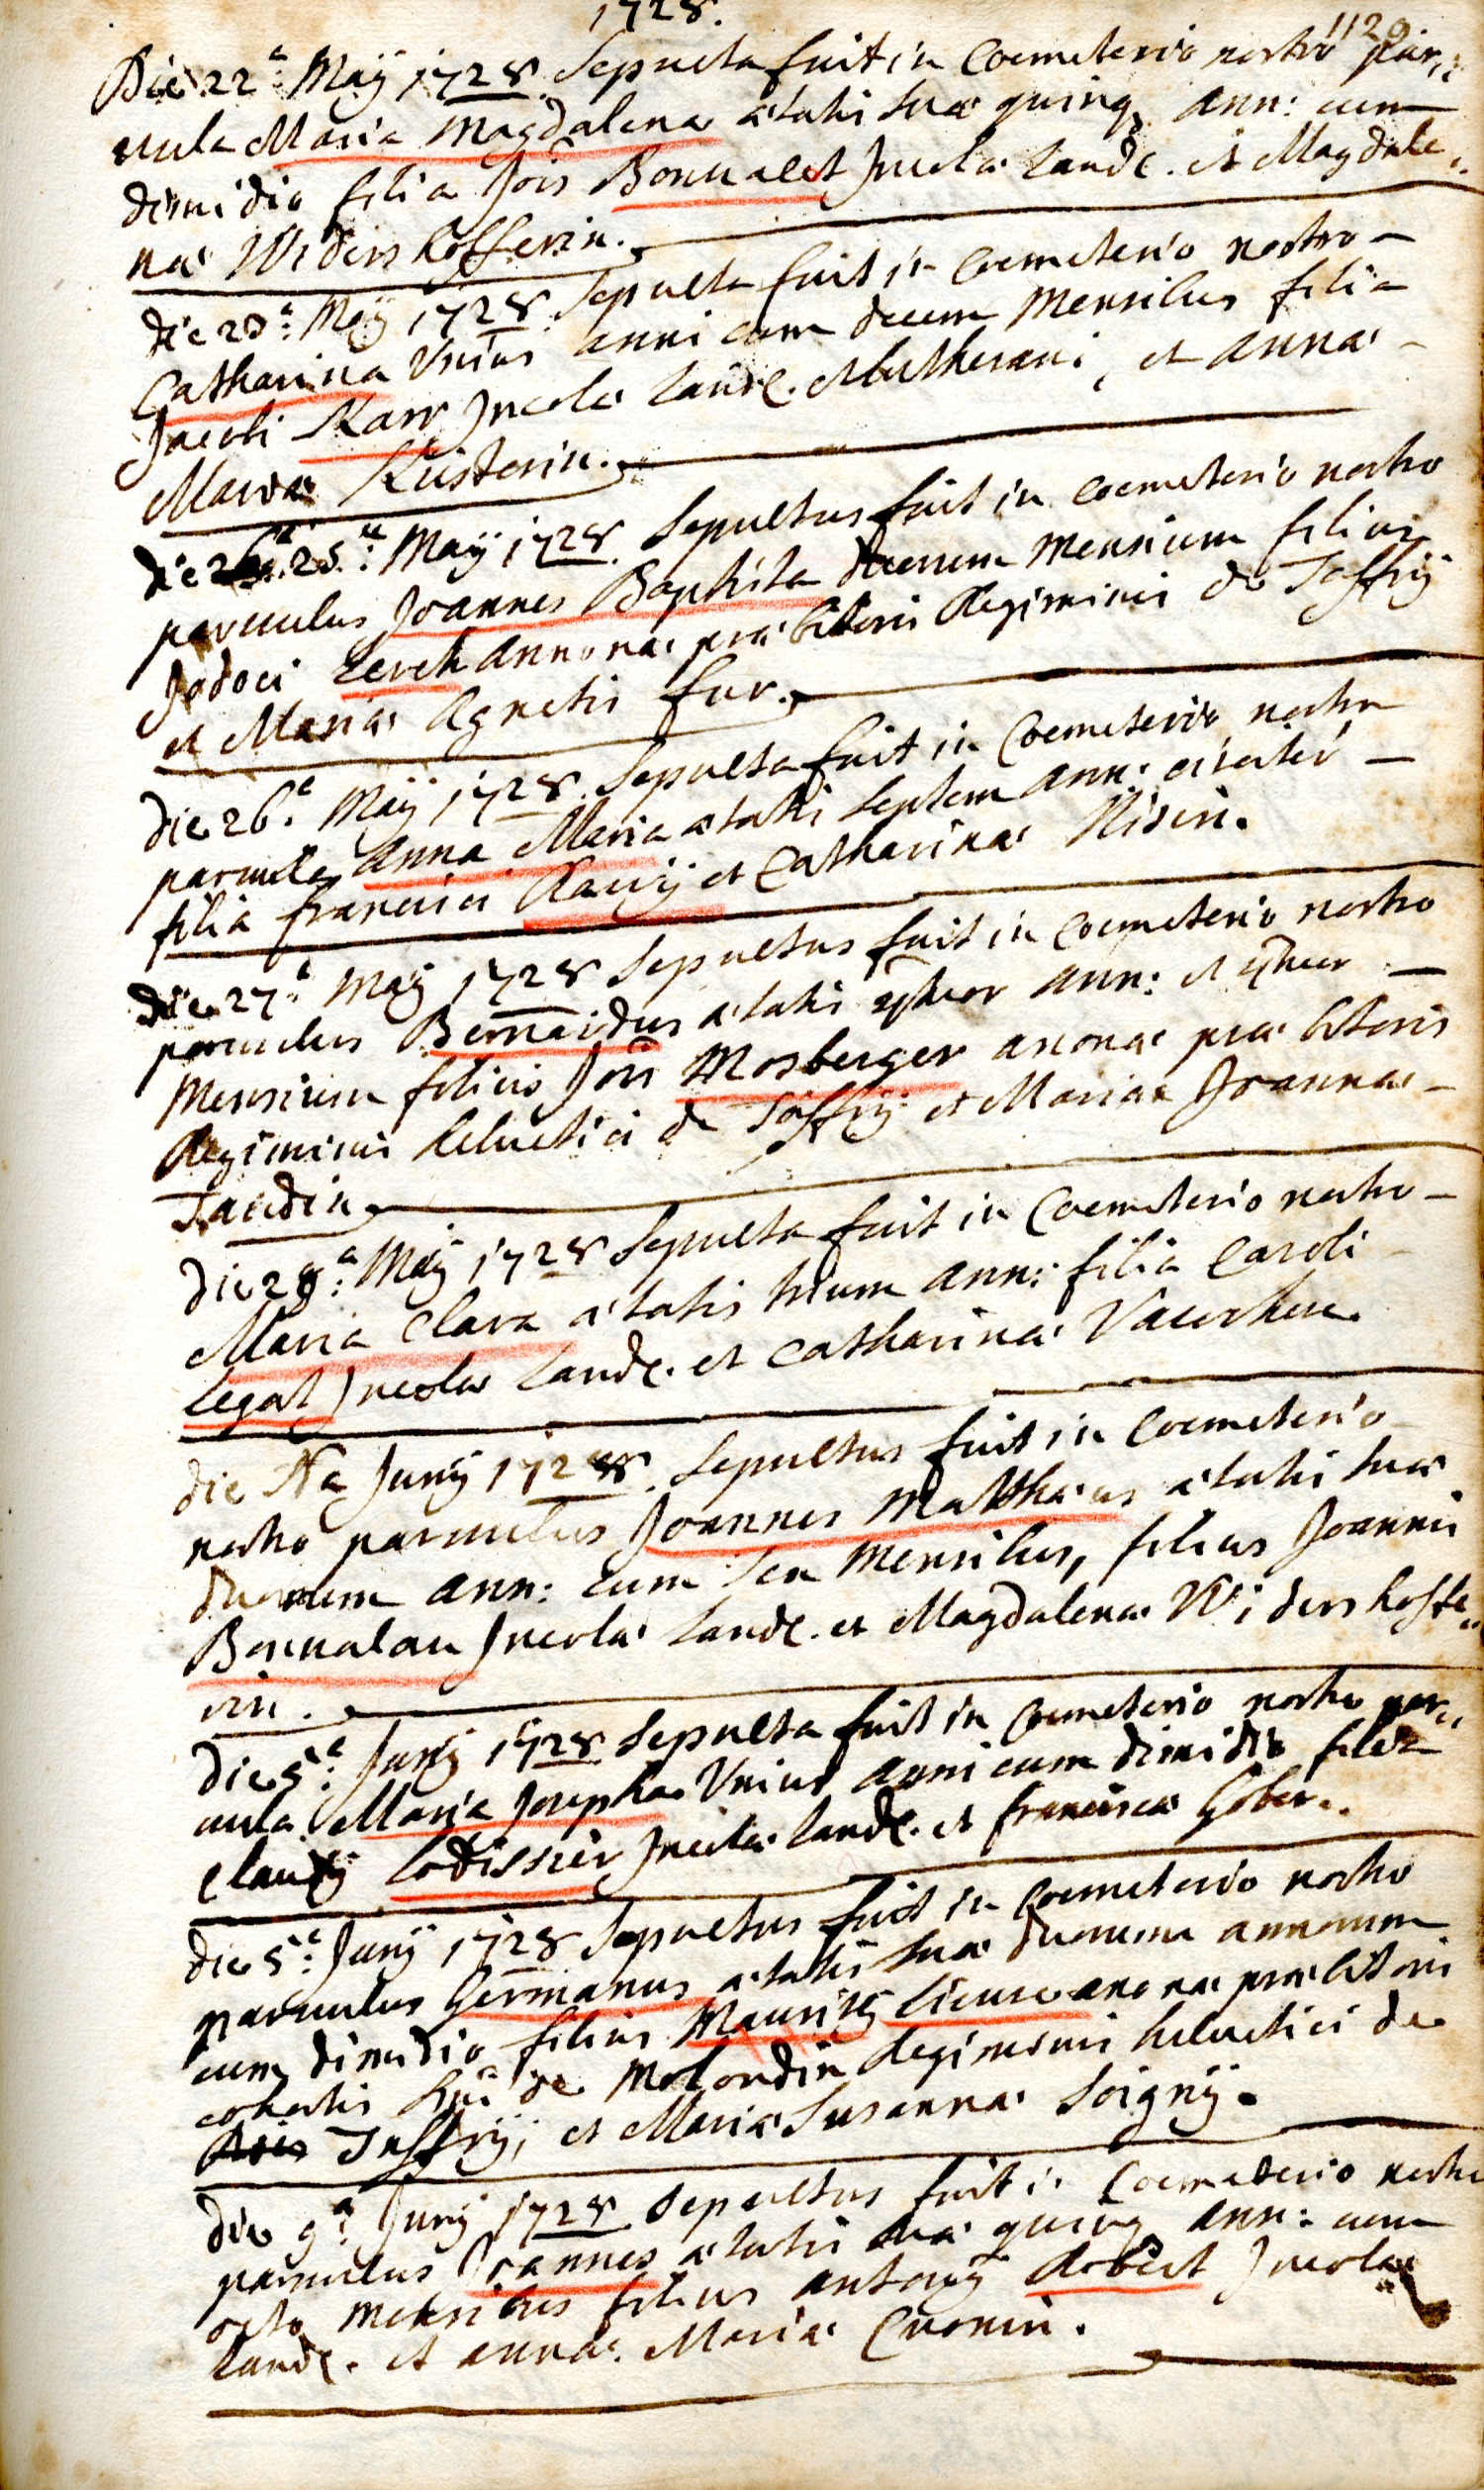 1728.
1129
Die 22ª: Maÿ 1728. Sepulta fuit in Coemeterio nostro par„
uula Maria Magdalena ætatis suæ quinq ann: cum
dimidio filia Jois Bonualet Jncolæ Landc. et Magdale„
næ Widers hofferin.
die 23ª: Maÿ 1728. Sepulta fuit in Coemeterio nostro
Catharina Unius anni cum decem Mensibus filia
Jacobi Karr Jncolæ Landc. Lutherani, et Annæ
Mariæ Küsterin.
die 25.ª: Maÿ 1728. Sepultus fuit in Coemeterio nostro
paruulus Joannes Baptista Mensium filius
Jodoci Lerch Annonæ præbitoris Regiminis de
et Mariæ Agnetis fur.
Die 26ª. Maÿ 1728. Sepulta fuit in Coemeterio nostro
paruula Anna Maria ætatis septem ann: circiter
filia francisci et Catharinæ Nisin.
Die 27ª: Maÿ 1728 Sepultus fuit in Coemeterio nostro
paruulus Bernardus ætatis ann: et
Mensium filius Jois Mosberger anonæ præbitoris
Regiminis helvetici de et Mariæ Joannæ
Jandin.
Die 28ª: Maÿ 1728 Sepulta fuit in Coemeterio nostro
Maria Clara ætatis trium ann: filia Caroli
Legat Jncolæ Landc. et Catharinæ
die Junÿ 1728. Sepultus fuit in Coemeterio
nostro paruulus Joannes Matthæus ætatis suæ
duorum ann: cum sex Mensibus, filius Joannis
Bonualau Jncolæ Landc. et Magdalenæ Widers hoffe„
rin.
Die 5ª: Junÿ 1728 Sepulta fuit in Coemeterio nostro par„
uula Maria Josepha Unius anni cum dimidio filia
Claudÿ Lodissier Jncolæ Landc. et franciscæ Gober.
die 5ª: Junÿ 1728 Sepultus fuit in Coemeterio nostro
paruulus Germanus ætatis suæ duorum annorum
cum dimidio filius Mauritÿ anonæ præbitoris
cohortis de Molondin Regiminis helvetici de
et Mariæ Susannæ Soignÿ.
Die 9ª: Junÿ 1728 Sepultus fuit in Coemeterio nostro
paruulus Joannes ætatis suæ quinq ann: cum
octo Mensibus filius Antonÿ Robert Jncolæ
Landc. et Annæ Mariæ Cronin.